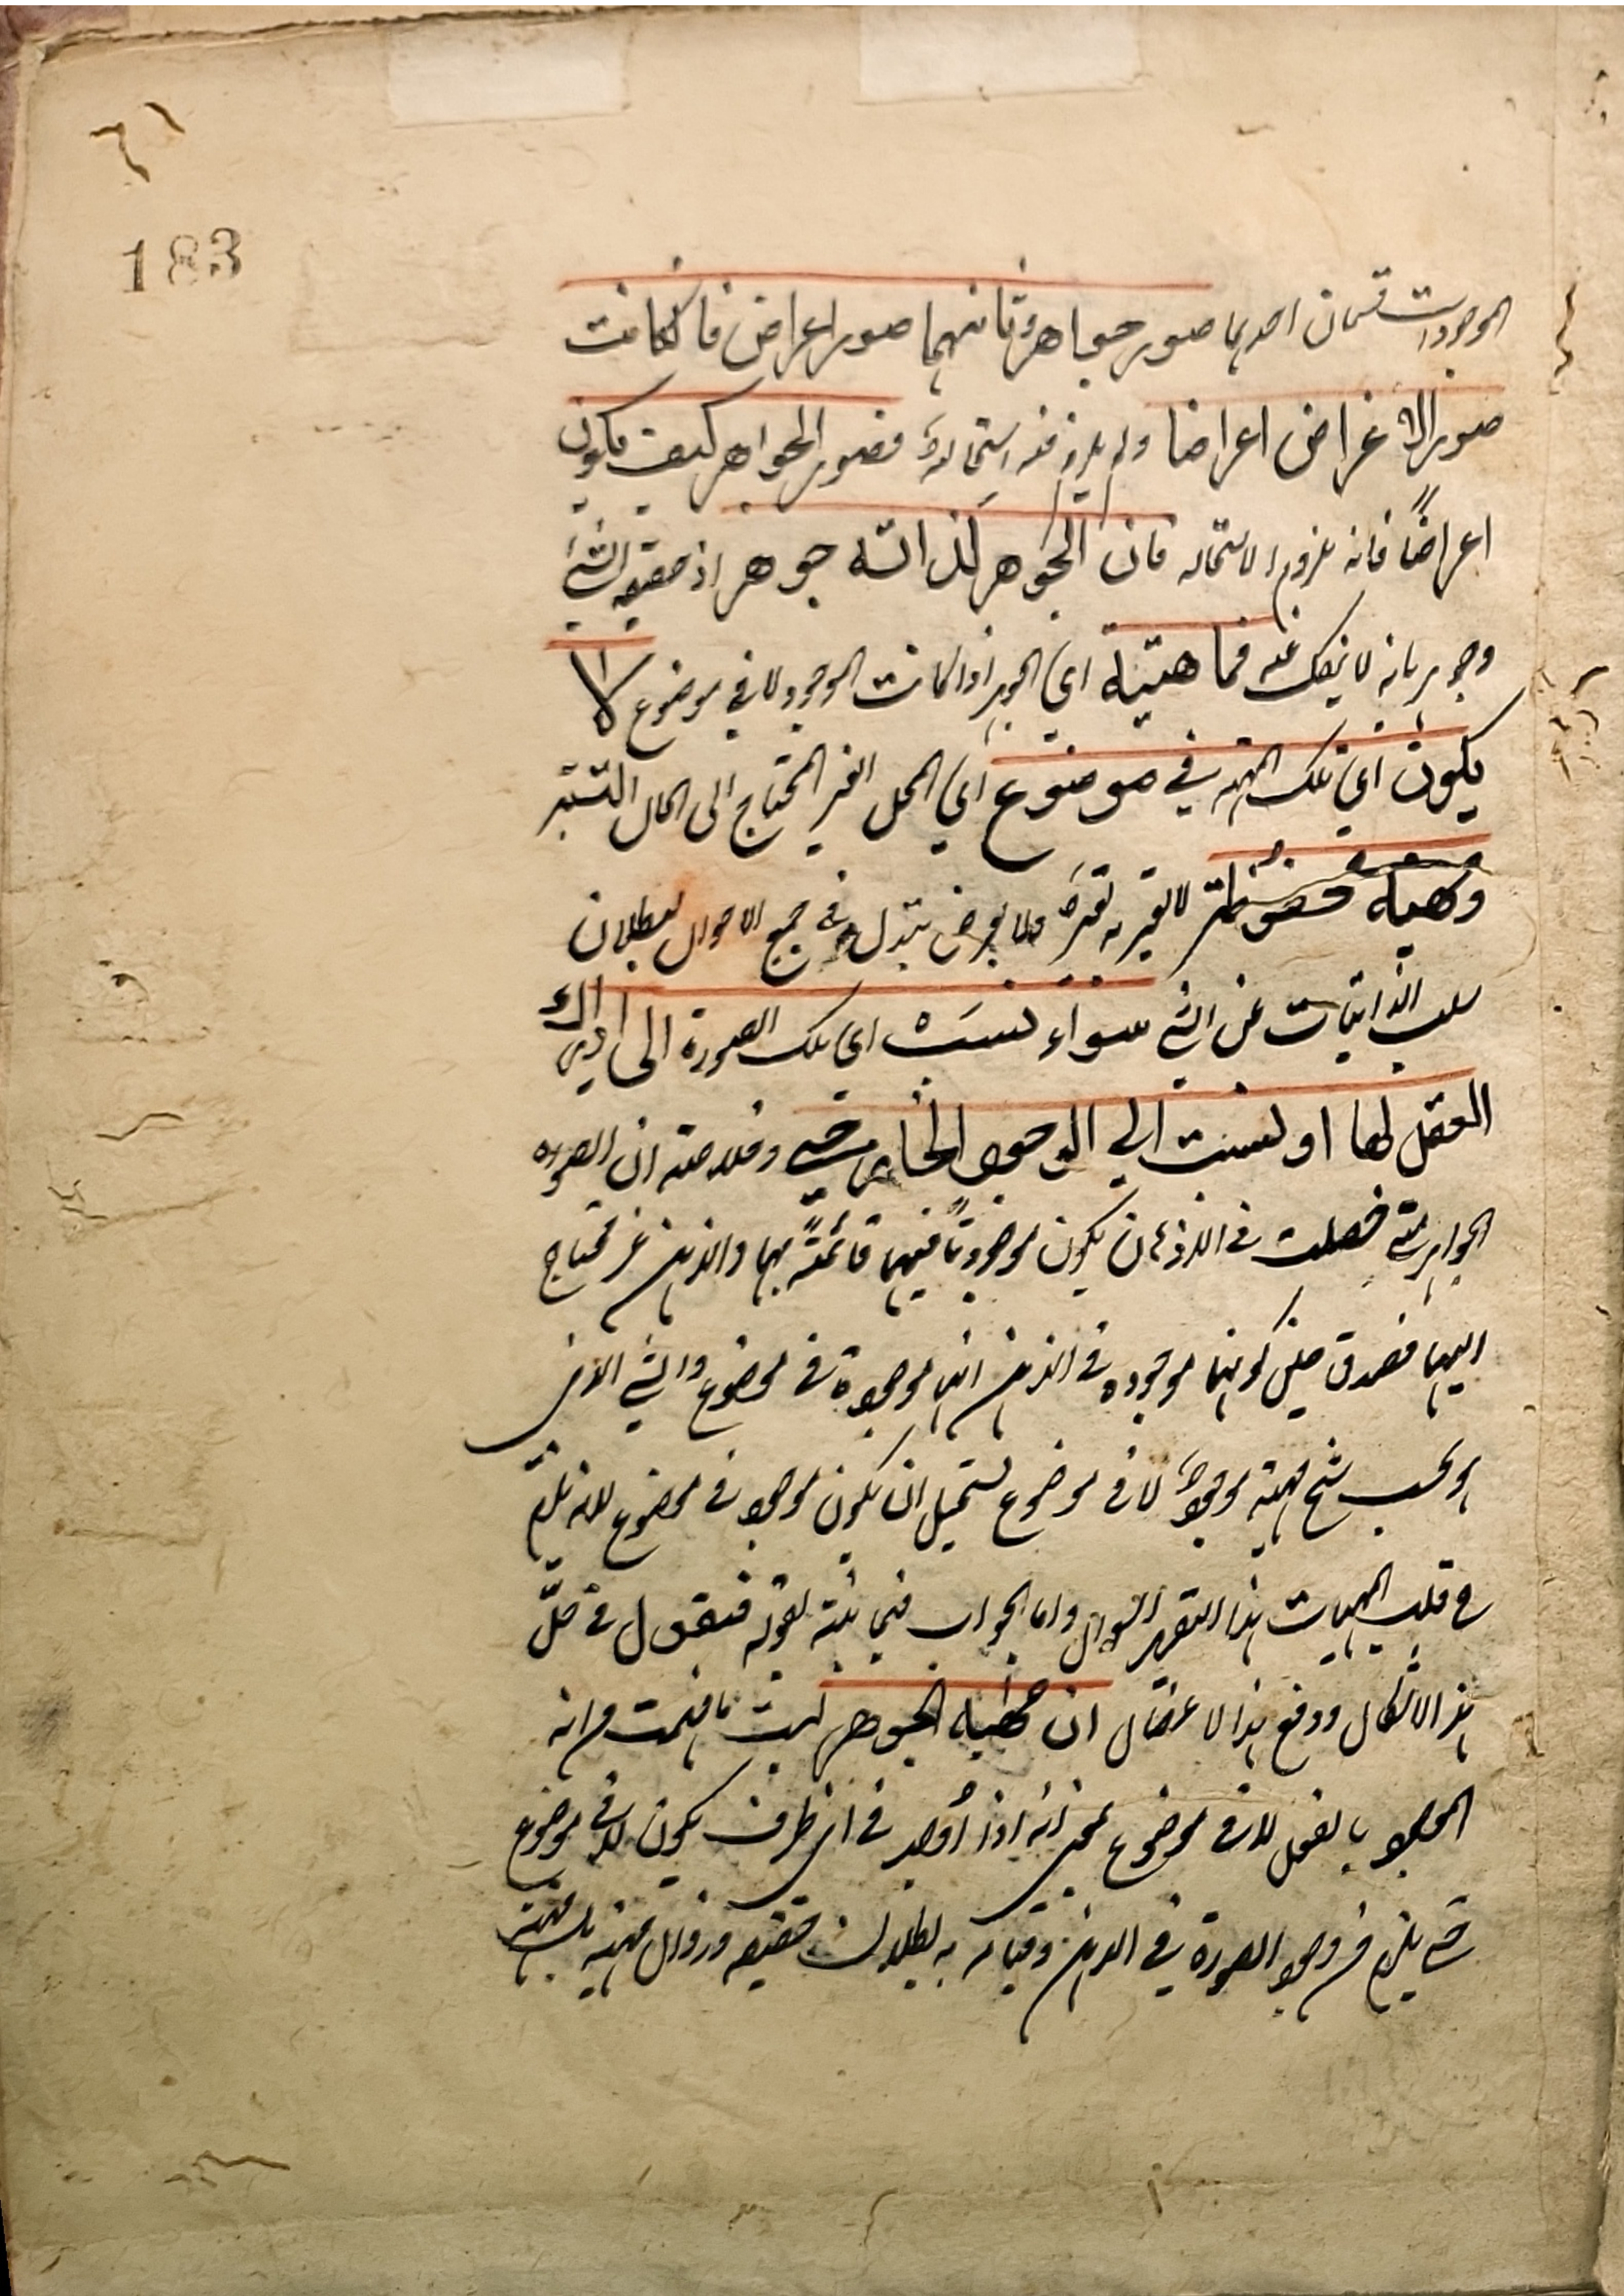 183
الموجودات قسمان احديها صور جواهر وثانيهما صور اعراض فان كانت
صور الاعراض اعراضا ولم يلزم منه استحالة فصور الجواهر كيف يكون
اعراضاً فانه ملزوم الاستحاله فان الجوهر لذاته جوهر اذ حقيقه الشئ
وجوهريانه لا ينفك عنه فماهيتة اى الجوهر اذا كانت الموجود لا في موضوع لا
يكون اى تلك المهيه في موضوع اى المحل الغير المحتاج الى الحال
وهيه محفوظة لا تغير به في جميع الاحوال لبطلان
سلب الذاتيات عن الشئ سواء نسبت اى تلك الصورة الى ادراك
العقل لها او نسبت الى الوجود الخارجي وخلاصته ان الصوره
الجواهرية حصلت في الاذهان يكون موجودتاً فيها قائمتاً بها والذهن غير محتاج
اليها فصدق على كونها موجوده في الذهن انها موجودة في موضوع والشئ الذى
هو بحسب سنخ مهيته موجود لا في موضوع يستحيل ان يكون موجود في موضوع لانه يلزم
ح قلب المهيات هذا التقرير السوال واما الجواب فبينه بقوله فنقول في حلّ
هذ الاشكال ودفع هذا الاعضال ان مهية الجوهر ليست ما فهمت من انه
الموجود بالفعل لا في موضوع بمعنى انه اذا وجد في اى ظرف يكون لا في موضوع
حتى يلزم من وجود الصورة في الذهن وقيامه به بطلان حقيقه وزوال مهيته